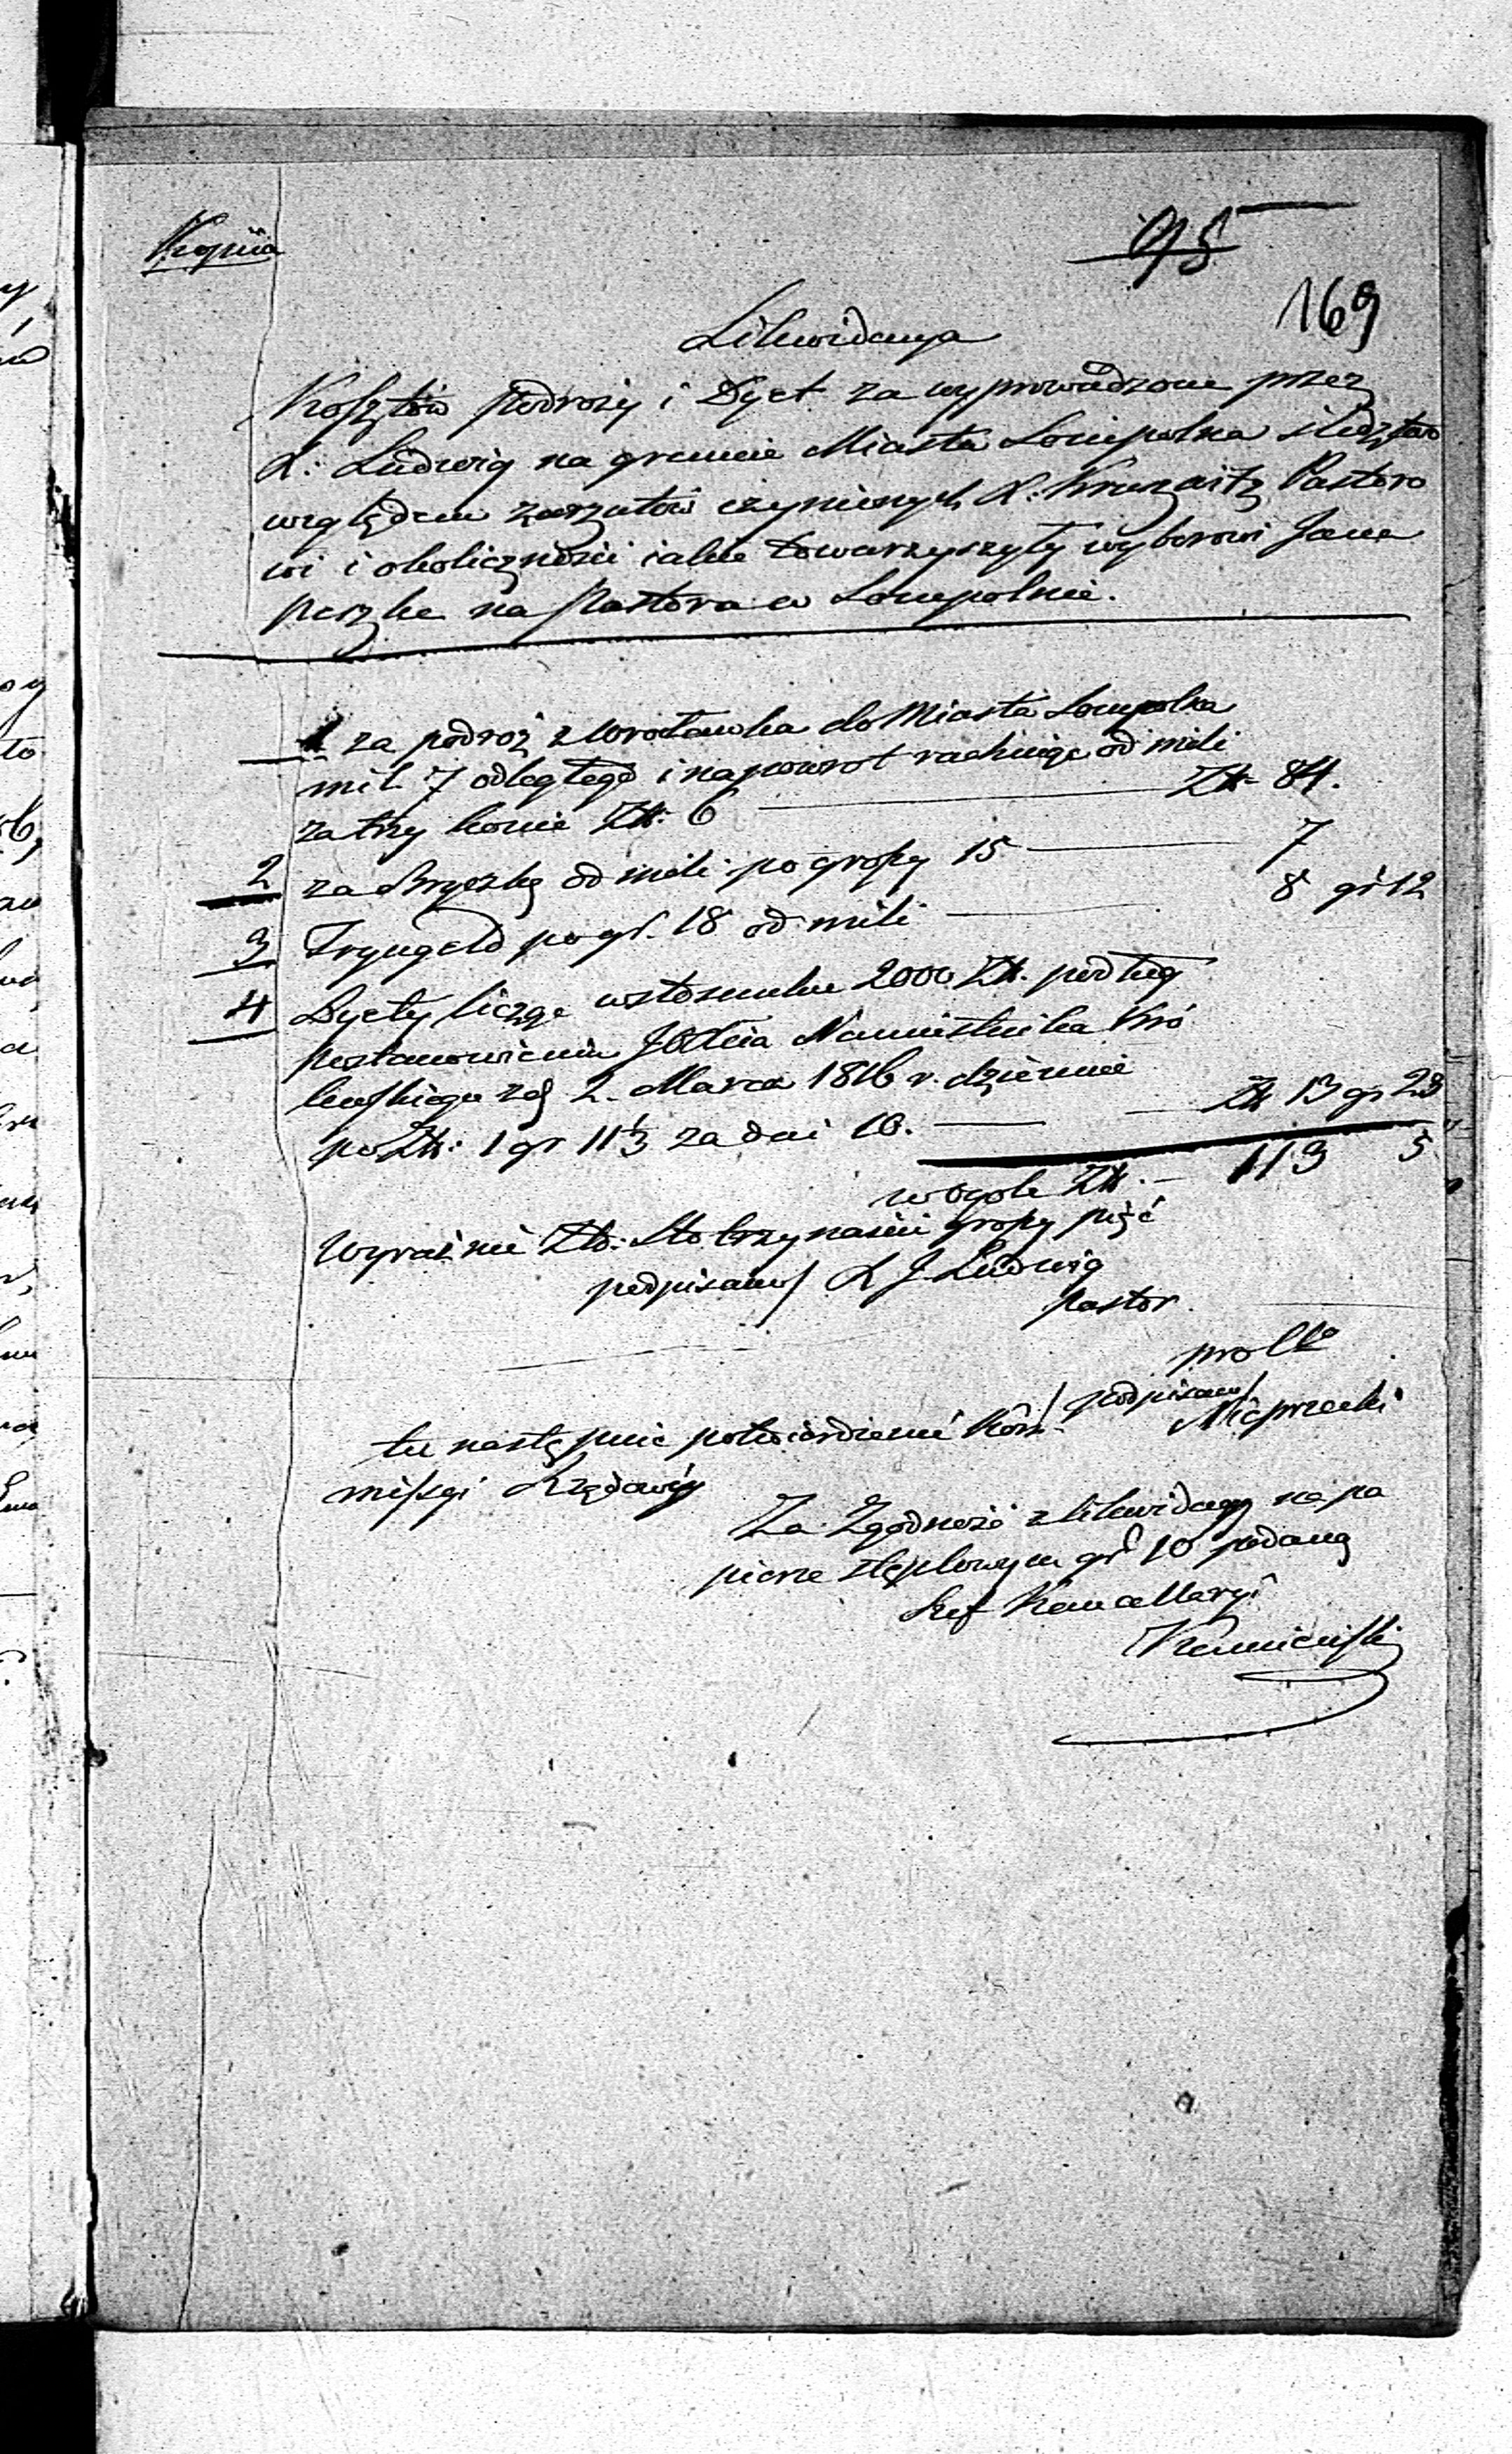 Kopiia
95
169
Likwidacya
Kosztów podroży i Dyet za wyprowadzone przez
X: Ludwig na gruncie Miasta Sompolna sledztwo
względem zarzutów czynionych X: Pastoro
wi i okoliczności iakie towarzyszyły wyborowi Jana
Peszke na Pastora w Sompolnie.
1 za podroż z Wrocławka do Miasta Sompolna
mil 7 odległego i napowrot rachuiąc od mili
za trzy konie Zł: 6 Zł 84.
2 za Bryczkę od mili po groszy 15 7
3 Tryngeld po gr. 18 od mili 8 gr 12
4 Dyety licząc w stosunku 2000 Zł. podług
postanowienia JOXcia Namiestnika Kró
lewskiego z d 2. Marca 1816 r. dziennie
po Zł: 1 gr 11⅓ za dni 10. Zł 13 gr 23
w ogole Zł. 113 5
Wyraźnie Złt: Sto trzynaście groszy pięć
podpisano/ L J. Ludwig
pastor.
pro
/podpisano/
tu następuie potwierdzenie Kom-
missyi Rządowéy
Za Zgodność z likwidacyą na pa
pierze stęplowym gr 10 podaną
Szef Kancellaryi